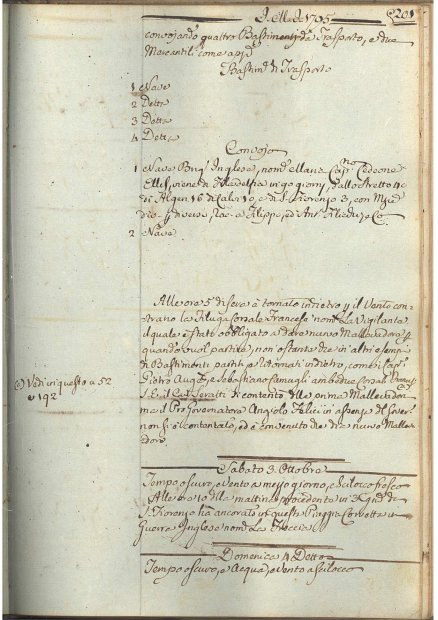 1795
201
convojando quattro Bastimenti da Trasporto, e due
Mercantili come app.o
Bastim.ti di Trasporto
1 Nave
2 Detta
3 Detta
4 Detta
Convojo
1 Nave Brig. Inglese, nom.
Cap.no Gedeone
Ellis, viene da Filadelfia in 90 giorni, dallo stretto 40
di Algeri 16 di Calvi 10, e di S. Fiorenzo 3, con
e diverse a Filippo, ed Ant. Filicchi e Co.
2 Nave
Alle ore 5 di sera è tornato indietro p. il Vento con-
trario la Filuga Corsale Francese nom. La Vigilante
il quale è stato obbligato a dare nuovo Mallevadore
quando vuol partire, non ostante che in altri tempi
di Bastimenti partiti, e ritornati indietro, come i Cap.
Pietro e Sebastiano Camugli ambedue Corsali
S. E. il di contentò della prima Mallevadoria
ma il Pro Governatore Angiolo Felici in assenza del
non si è contentato, ed è convenuto che dia nuovo Malle-
vadore
Vedi in questo a 52
e 192
Sabato 3. Ottobre
Tempo oscuro, e vento a mezzo giorno, e Scilocco fresco
Alle ore 10 della mattina procedente in 3
S. Fiorenzo ha ancorato in questa Piaggia Corvetta da
Guerra Inglese nom. La Freccia
Domenica 4 Detto
Tempo oscuro, e Acqua, e vento a Scilocco